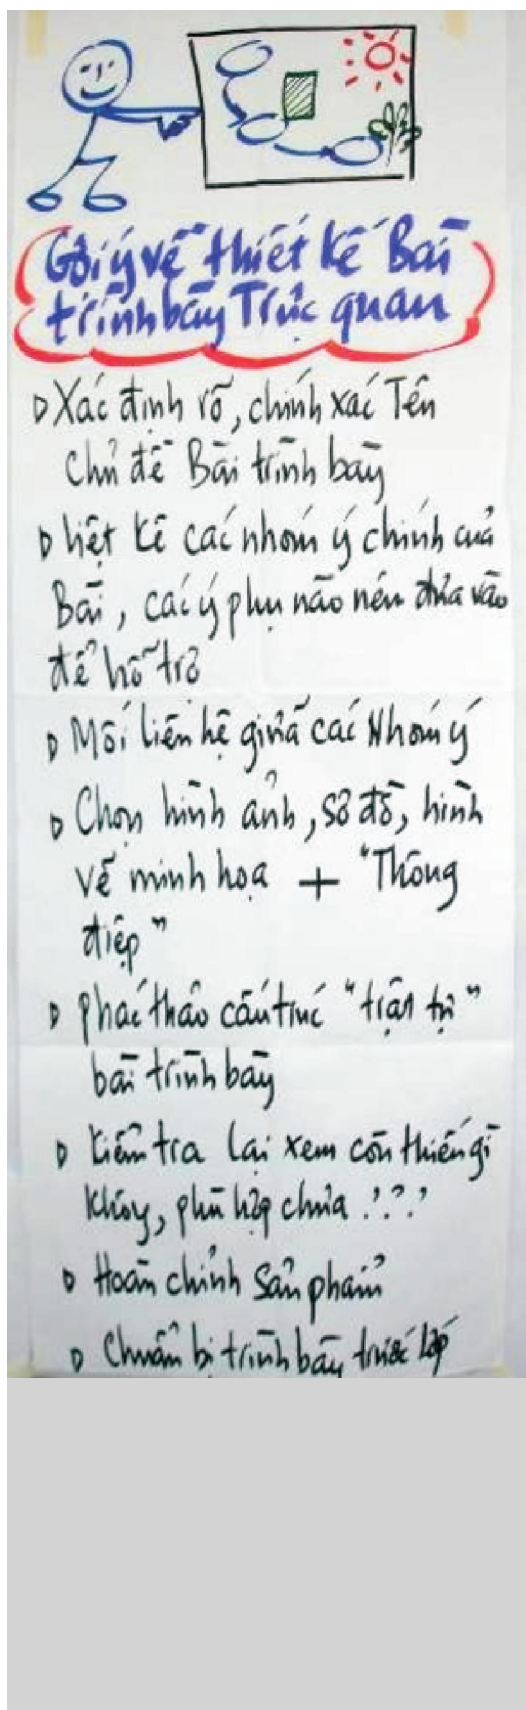 Gợi ý về thiết kế Bài
trình bày Trực quan
Xác định rõ, chính xác Tên
chủ đề Bài trình bày
Liệt kê các nhóm ý chính của
Bài, các ý phụ nào nên đưa vào
để hỗ trợ
Mối liên hệ giữa các Nhóm ý
Chọn hình ảnh, sơ đồ, hình
vẽ minh họa + "Thông
điệp"
Phác thảo cấu trúc "trật tự"
bài trình bày
Kiểm tra lại xem còn thiếu gì
không, phù hợp chưa ???
Hoàn chỉnh sản phẩm
Chuẩn bị trình bày trước lớp